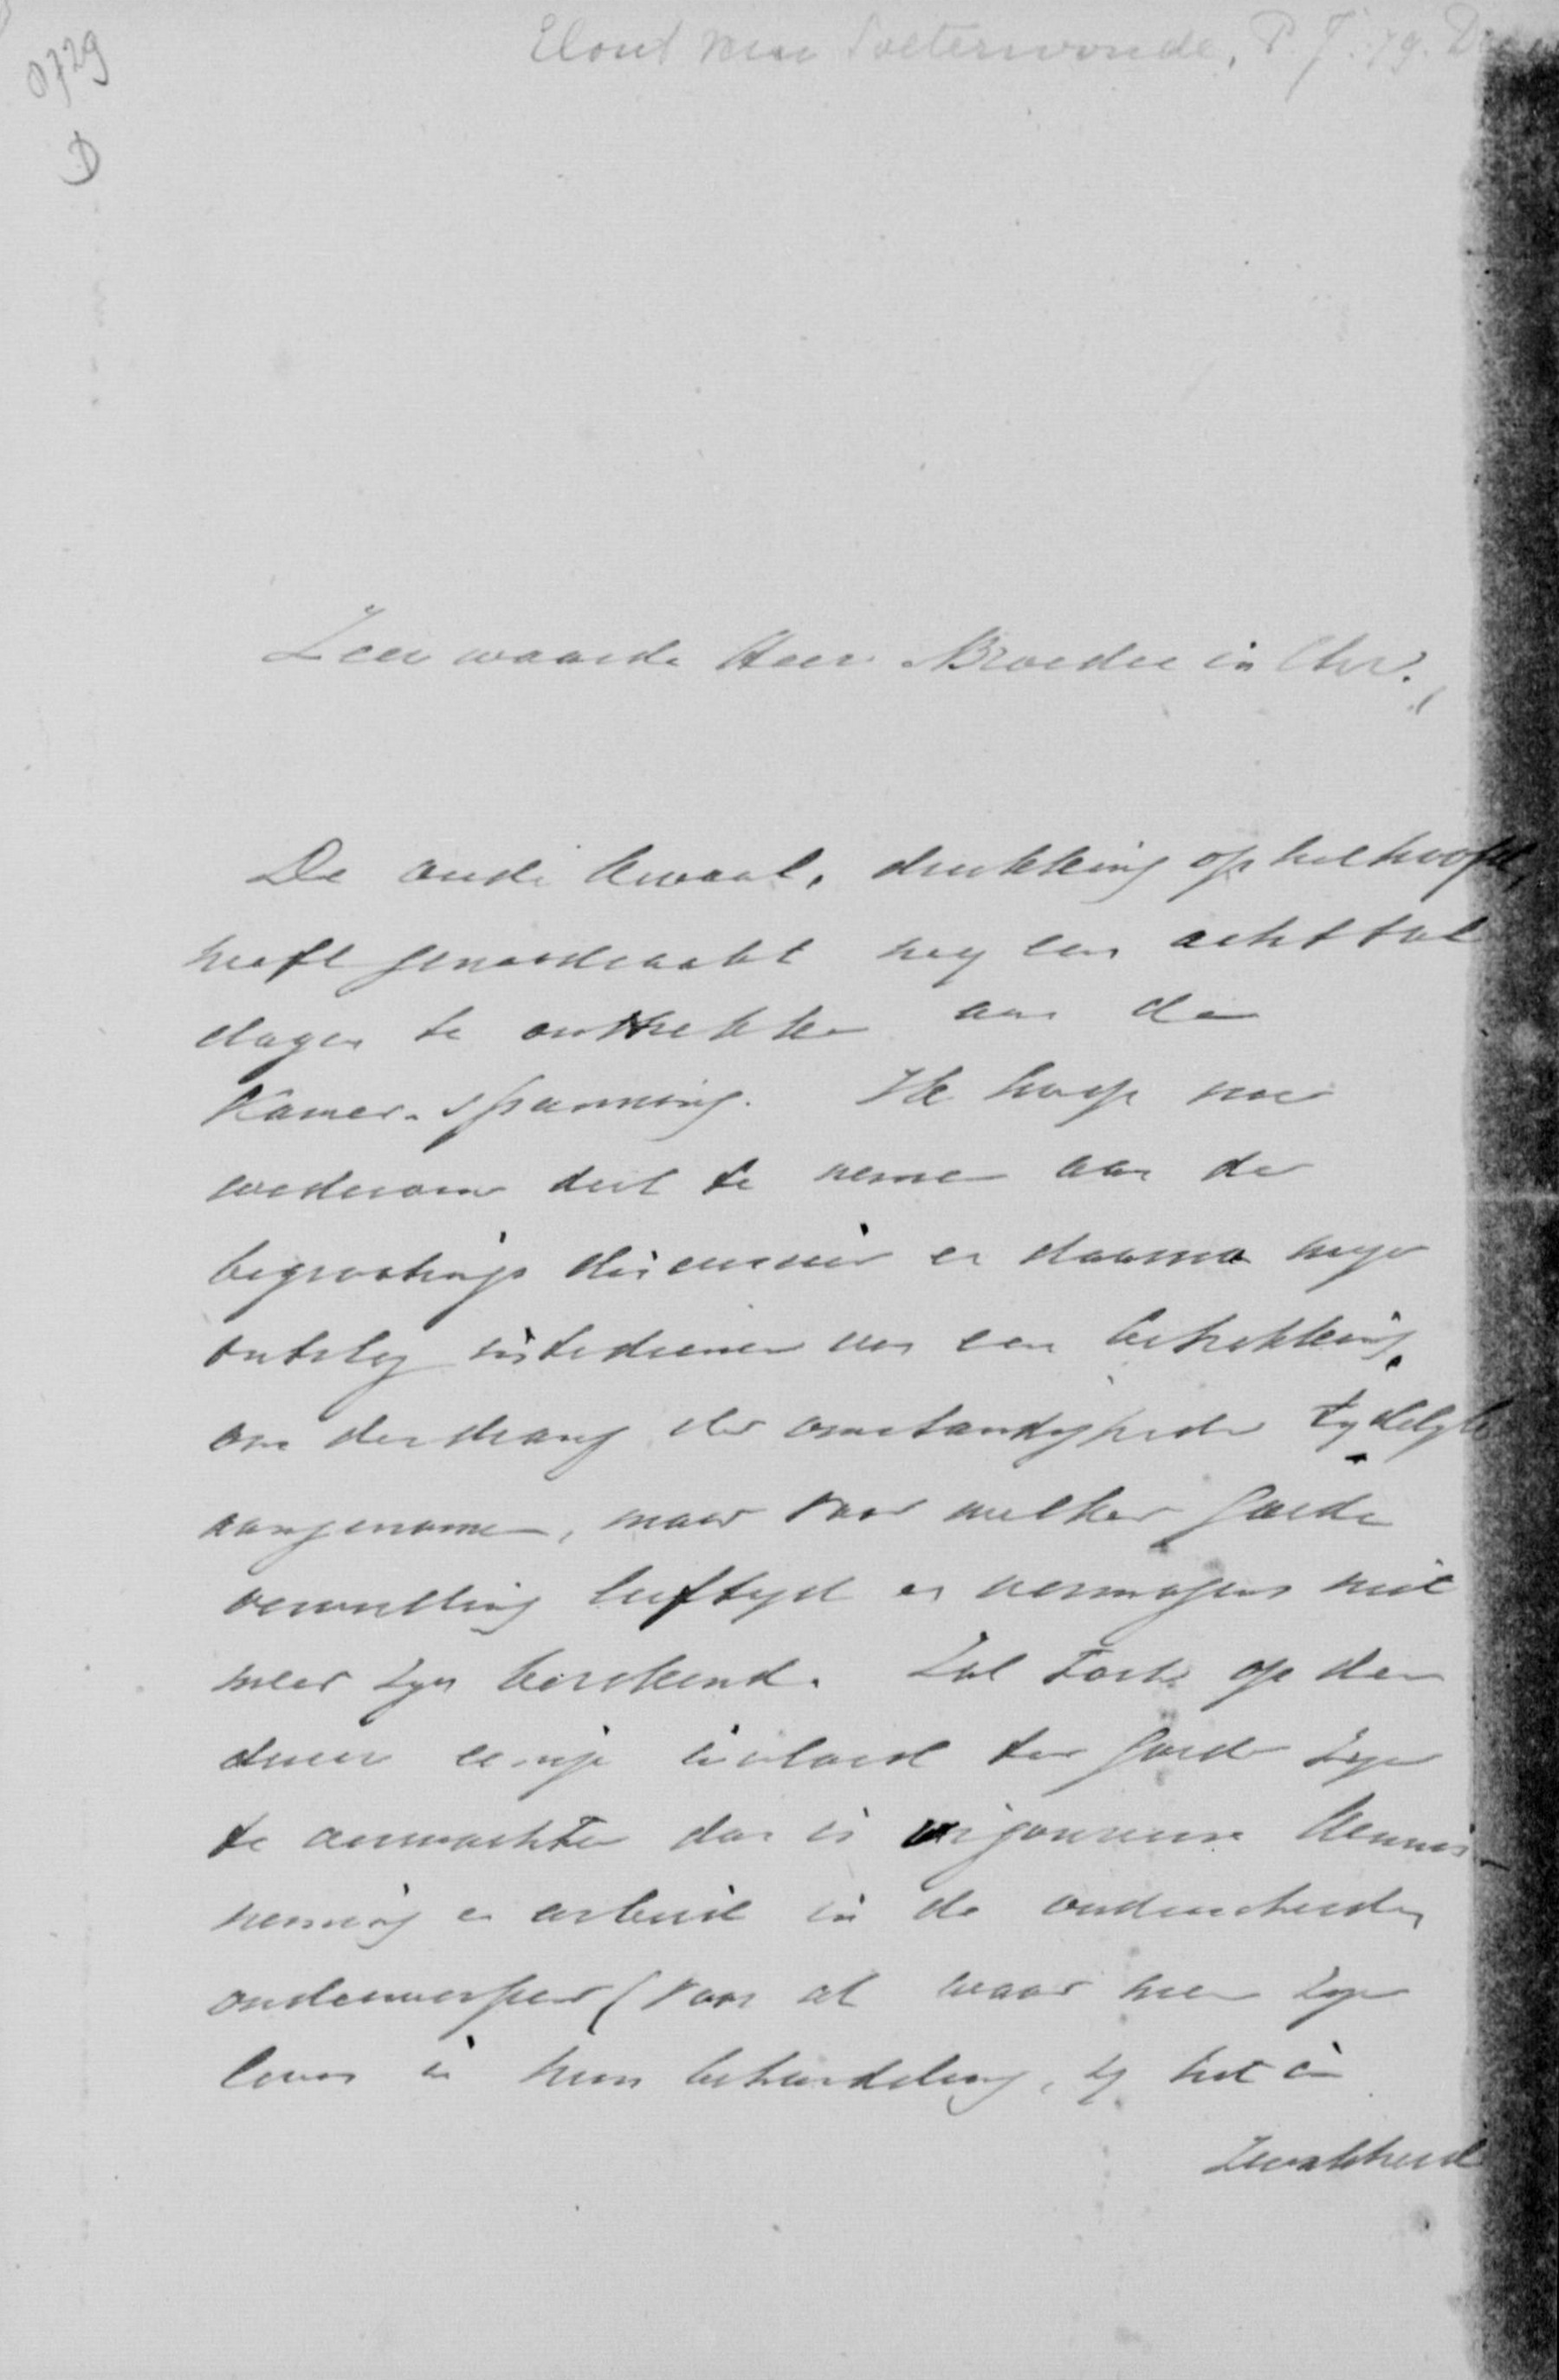 0729
D
Elout van Soeterwoude, P. J. 79. D
Zeer waarde Heer Broeder in Chr.,
De oude kwaal, drukking op het hoofd,
heeft genoodzaakt nog een achttal
dagen te onttrekken aan de
Kamer-spanning. Ik hoop nu
wederom deel te nemen aan de
begrootings discussien en daarna mijn
ontslag intedienen van een betrekking,
om den drang der omstandigheden tydelyk
aangenomen, maar voor welker goede
vervulling leeftyd en vermogens niet
meer zyn berekend. Zal toch op den
duur eenige invloed ten goede zyn
te verwachten dan is vigoureuse kennis-
neming en arbeid in de onderscheiden
onderwerpen (voor al waar men zyn
leven in hun behandeling, zy het in
Zwakheid